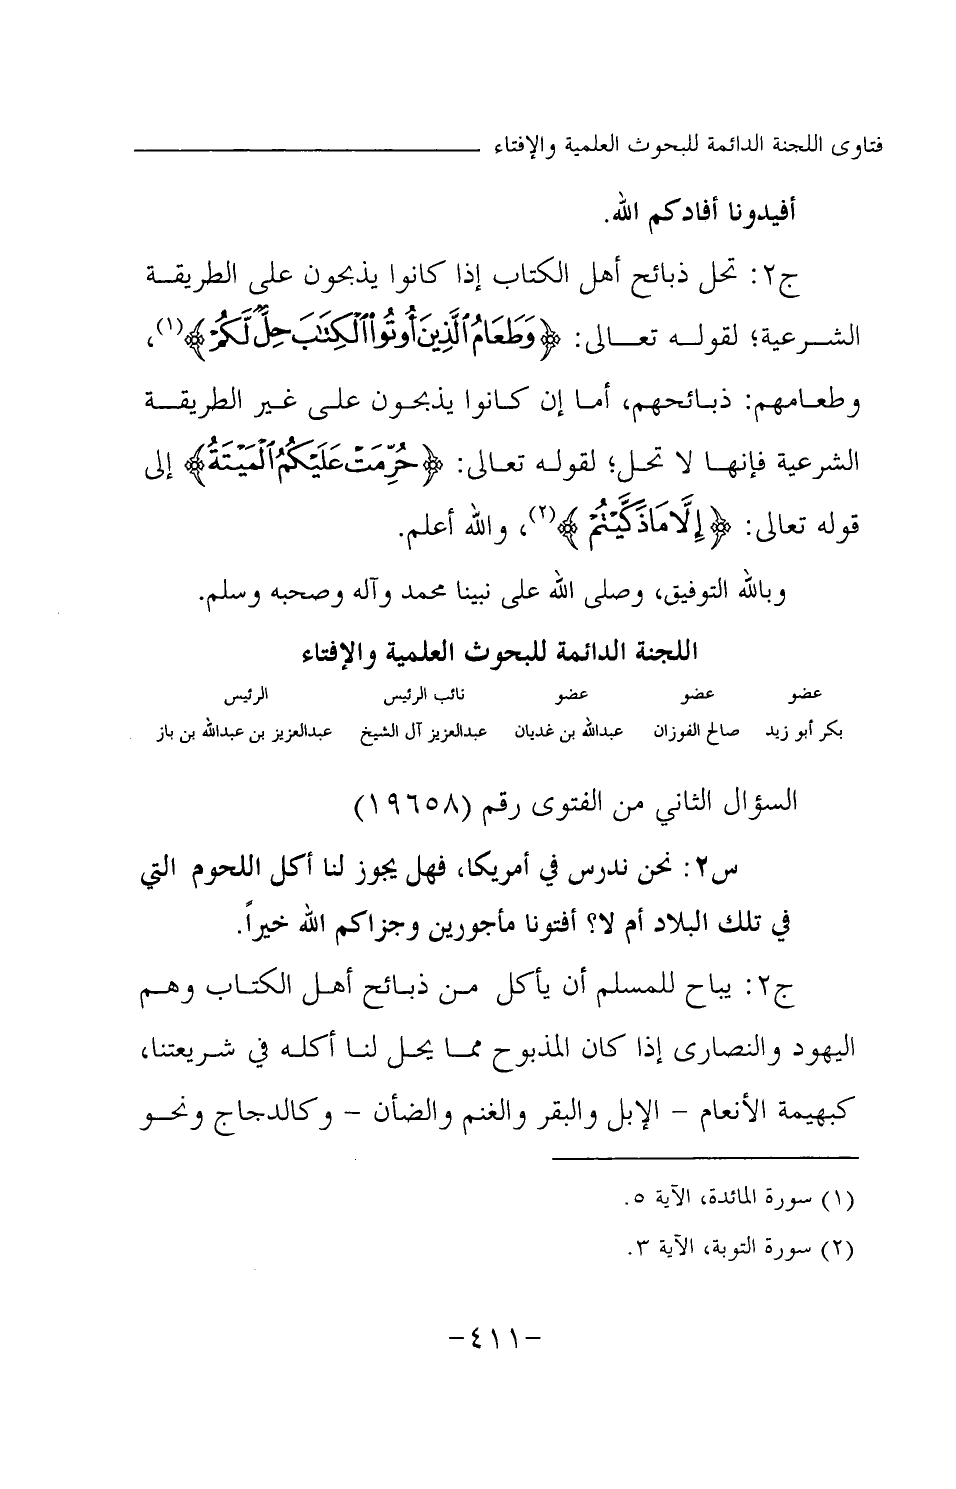 فتاوى اللجنة الدائمة للبحوث العلمية والإفتاء
أفيدونا أفادكم الله.
ج٢: تحل ذبائح أهل الكتاب إذا كانوا يذبحون على الطريقة
الشرعية؛ لقوله تعالى: ﴿وَطَعَامُ ٱلَّذِينَ أُوتُوا۟ ٱلْكِتَٰبَ حِلٌّ لَّكُمْ﴾(١)،
وطعامهم: ذبائحهم، أما إن كانوا يذبحون على غير الطريقة
الشرعية فإنها لا تحل؛ لقوله تعالى: ﴿حُرِّمَتْ عَلَيْكُمُ ٱلْمَيْتَةُ﴾ إلى
قوله تعالى: ﴿إِلَّا مَا ذَكَّيْتُمْ﴾(٢)، والله أعلم.
وبالله التوفيق، وصلى الله على نبينا محمد وآله وصحبه وسلم.
اللجنة الدائمة للبحوث العلمية والإفتاء
عضو عضو عضو نائب الرئيس الرئيس
بكر أبو زيد صالح الفوزان عبدالله بن غديان عبدالعزيز آل الشيخ عبدالعزيز بن عبدالله بن باز
السؤال الثاني من الفتوى رقم (١٩٦٥٨)
س٢: نحن ندرس في أمريكا، فهل يجوز لنا أكل اللحوم التي
في تلك البلاد أم لا؟ أفتونا مأجورين وجزاكم الله خيراً.
ج٢: يباح للمسلم أن يأكل من ذبائح أهل الكتاب وهم
اليهود والنصارى إذا كان المذبوح مما يحل لنا أكله في شريعتنا،
كبهيمة الأنعام - الإبل والبقر والغنم والضأن - وكالدجاج ونحو
(١) سورة المائدة، الآية ٥.
(٢) سورة التوبة، الآية ٣.
-٤١١-